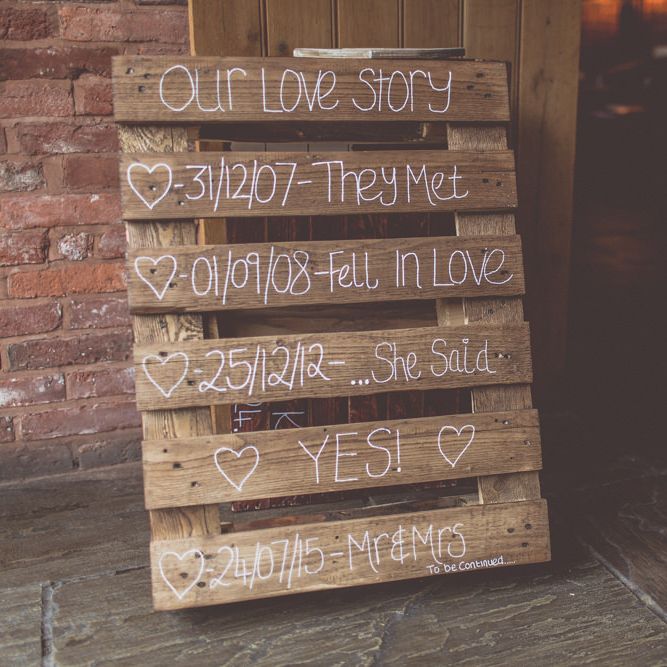 Our Love Story
♡-31/12/07-They Met
♡-01/09/08-Fell In Love
♡-25/12/12-...She Said
♡ YES! ♡
♡-24/07/15-Mr&Mrs
To be Continued.....